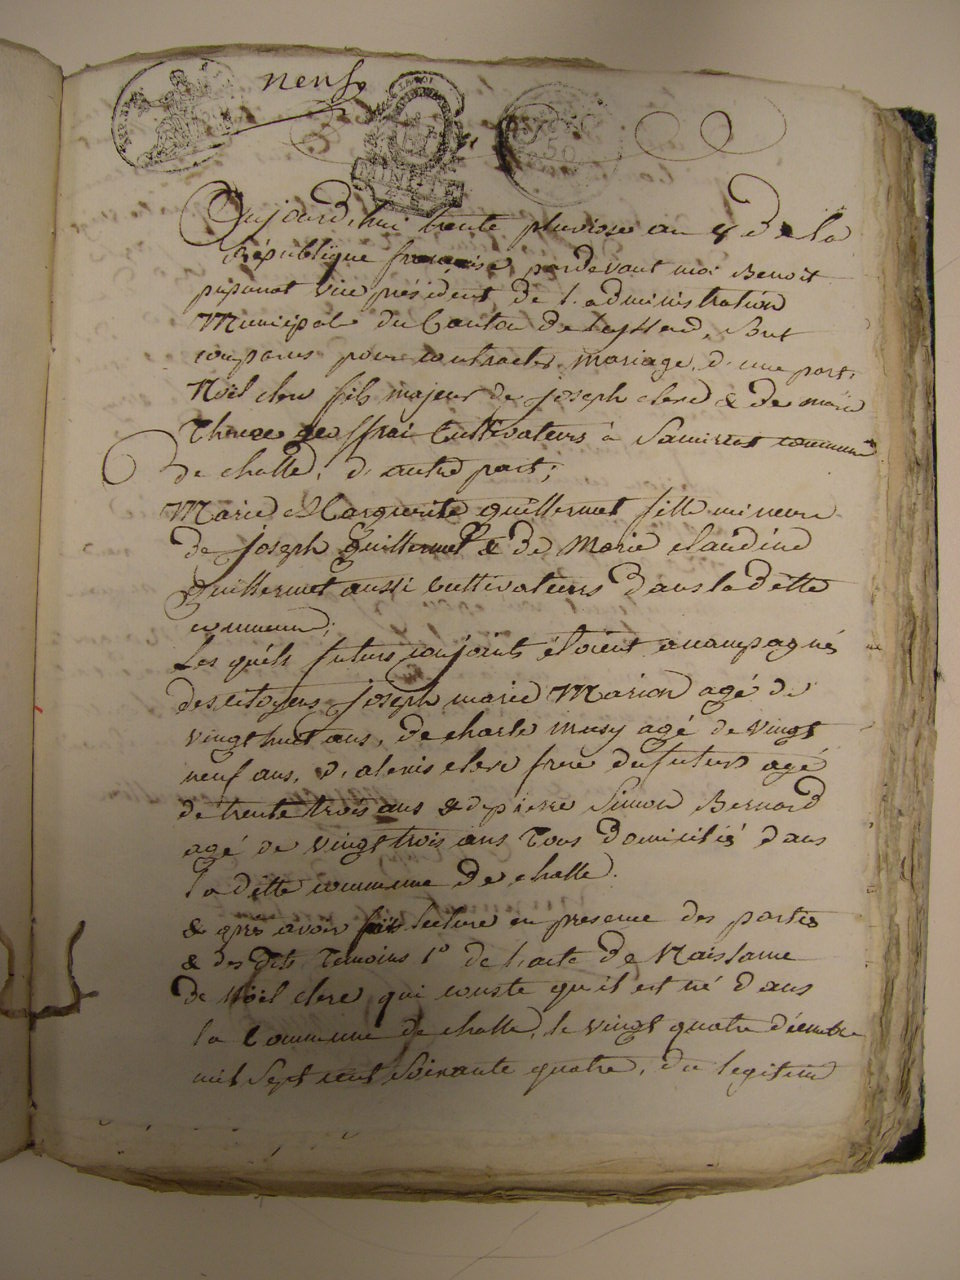 neuf
Aujourd'hui trente pluviose an 8 de la
République française, pardevant moi Benoit
vice président de l'administration
Municipale du Canton de, sont
comparus pour contracter mariage, d'une part,
Noël clerc fils majeur de joseph clerc & de marie
Therese geoffrai Cultivateurs à commune
de challe, d'autre part;
Marie Marguerite guillermet fille mineure
de joseph guillermet & de Marie claudine
guillermet aussi cultivateurs dans la ditte
commune;
Les quels futurs conjoints étoient accompagnés
des citoyens joseph marie Marion agé de
vingt huit ans, de charle musy agé de vingt
neuf ans, d'alexis clerc frere du futur agé
de trente trois ans & de pierre Simon Bernard
agé de vingt trois ans Tous domiciliés dans
la ditte commune de challe.
& après avoir fait lecture en presence des parties
& des dits Temoins 1° de l'acte de Naissance
de Noël clerc qui conste qu'il est né dans
la Commune de challe, le vingt quatre décembre
mil sept cent soixante quatre, du legitime